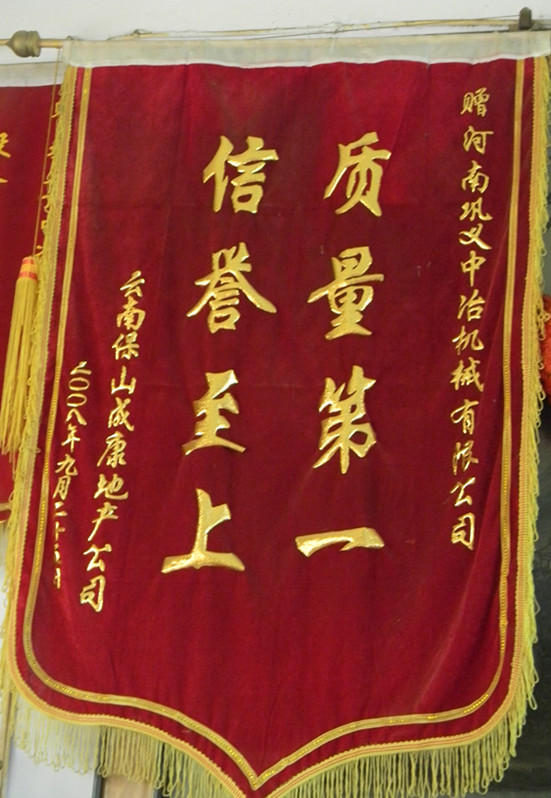 赠河南巩义中冶机械有限公司
质量第一
信誉至上
云南保山成康地产公司
二00八年九月二十